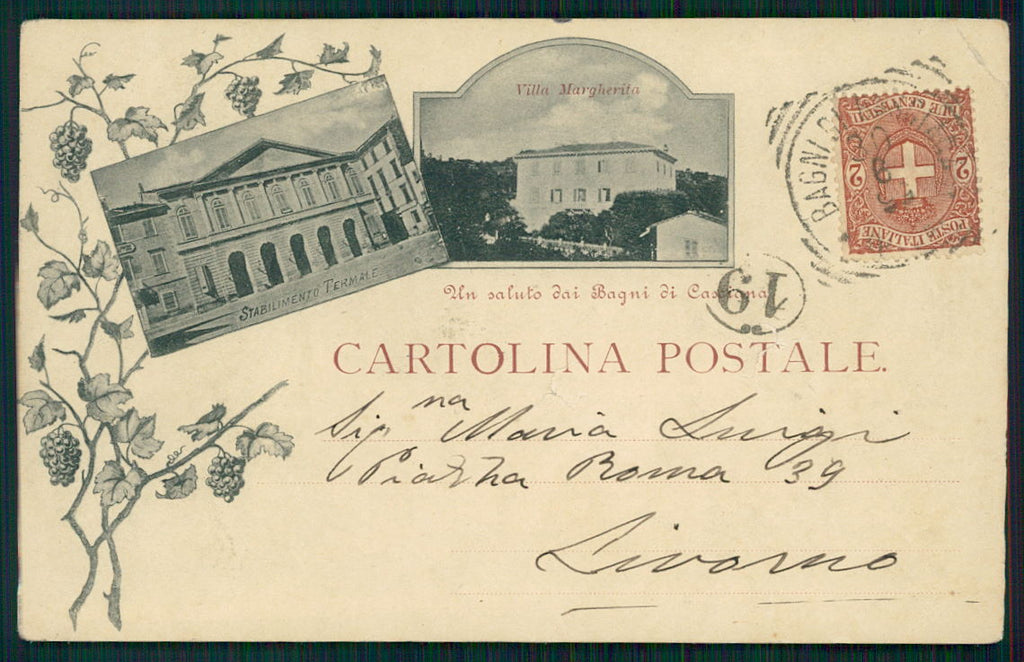 Villa Margherita
STABILIMENTO TERMALE
Un saluto dai Bagni di Casciana
19
CARTOLINA POSTALE.
DUE CENTESIMI
2 2
POSTE ITALIANE
BAGNI
Sig.na Maria Luigi
Piazza Roma 39
Livorno